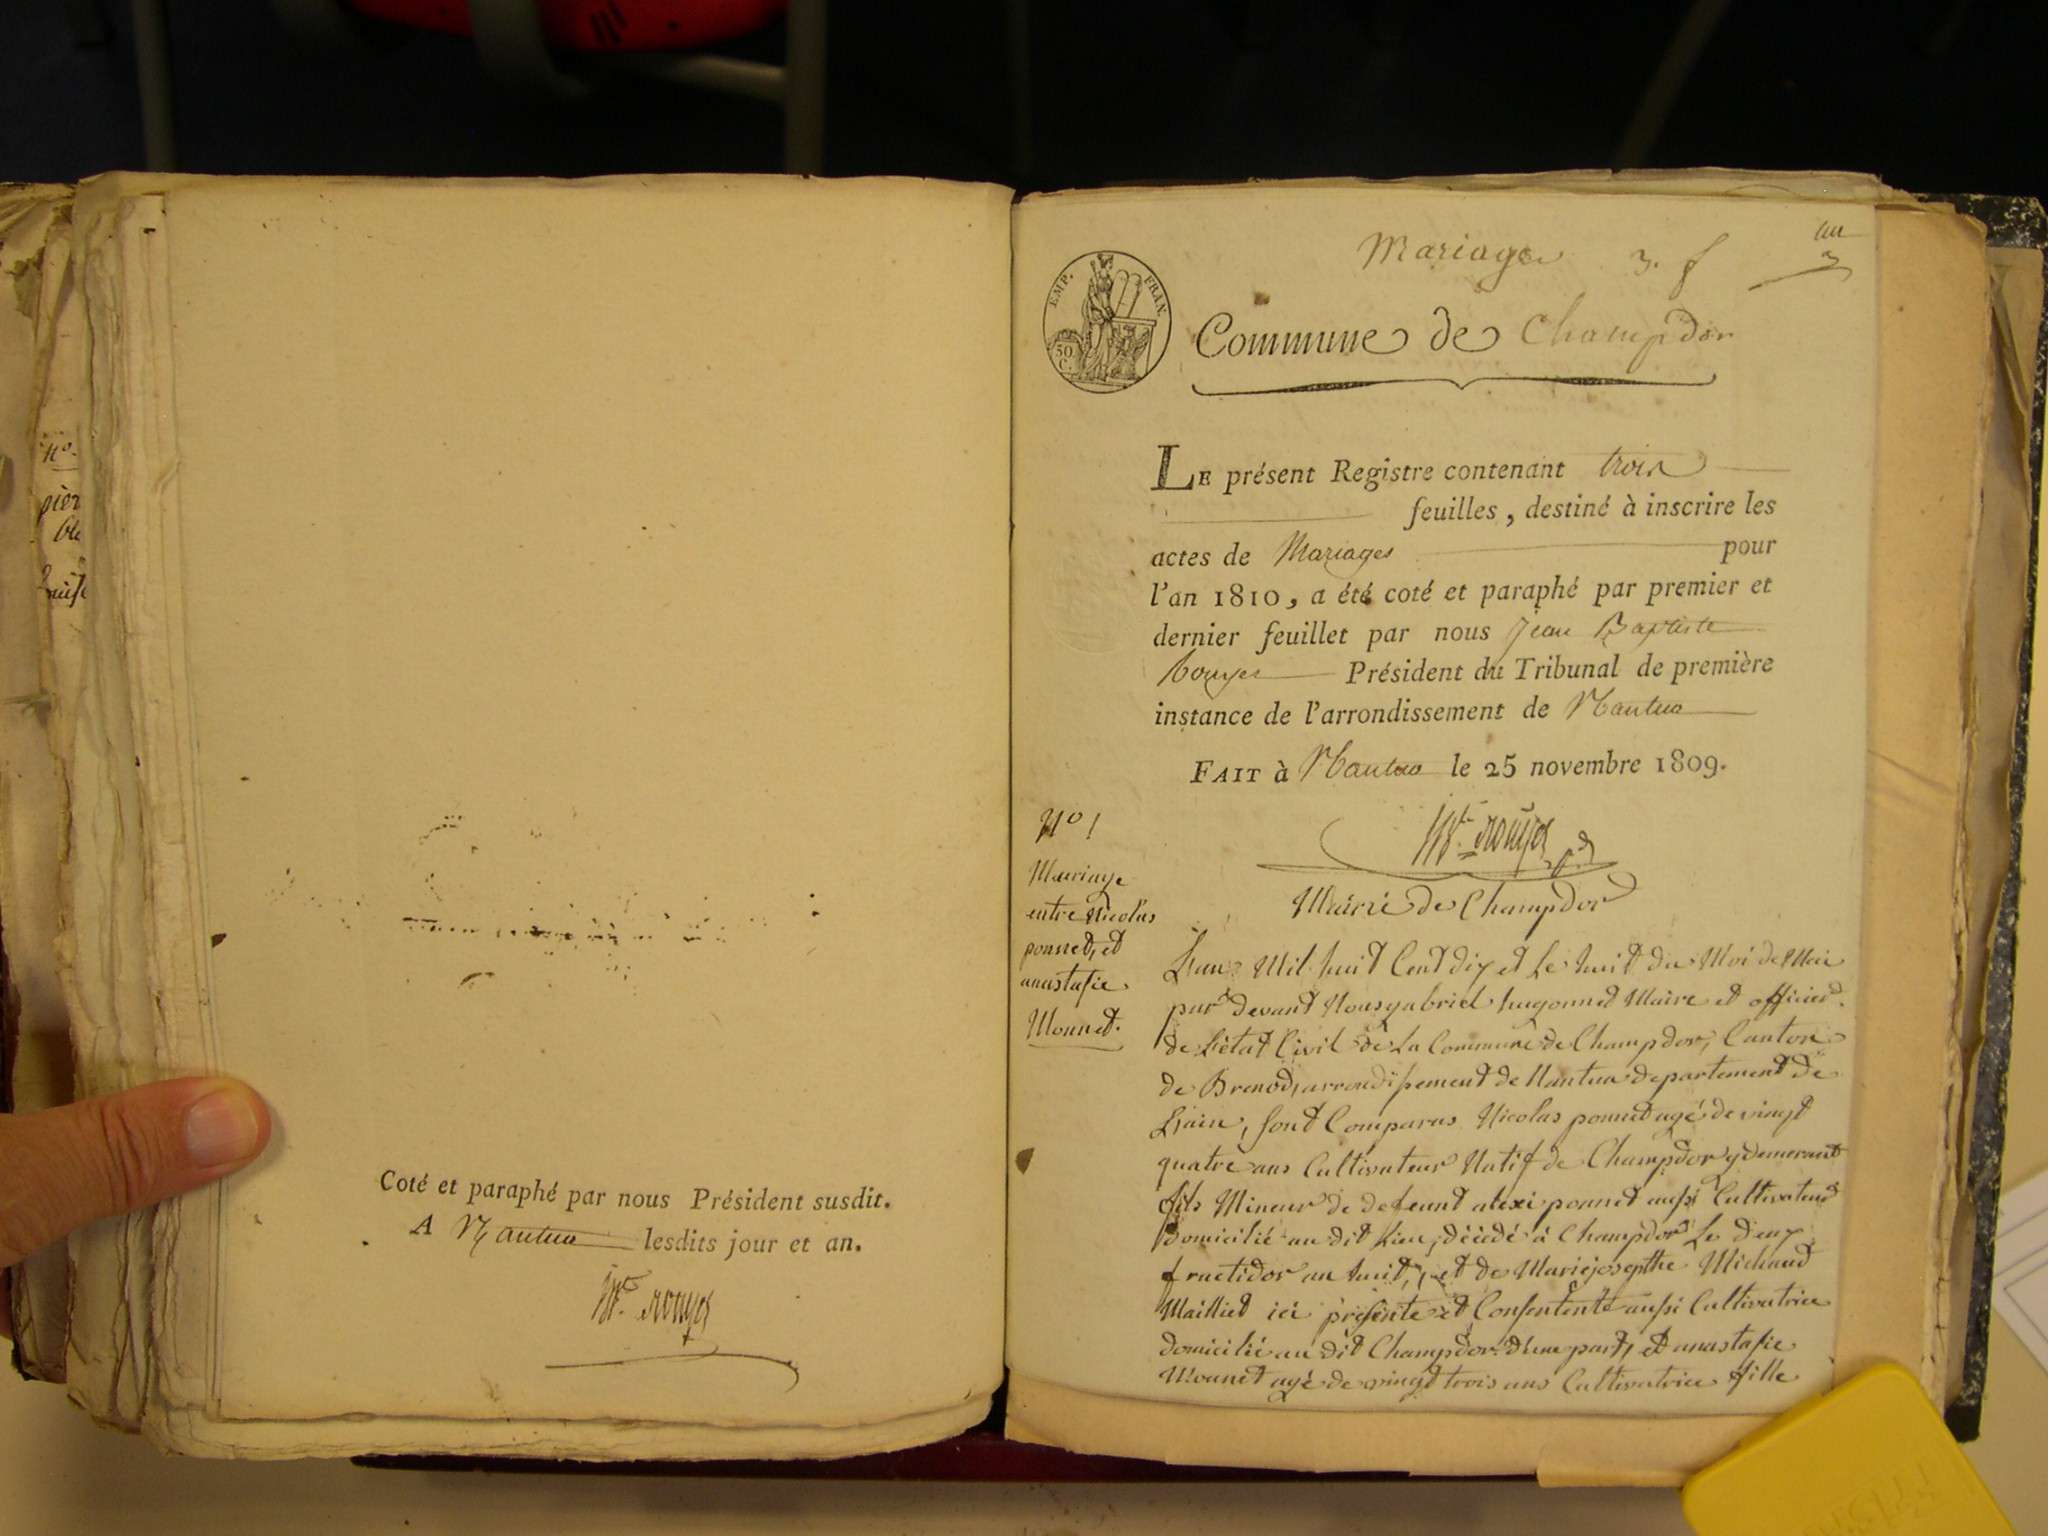 Coté et paraphé par nous Président susdit.
A Nantua lesdits jour et an.
Mariage 3. f
EMP. FRAN.
50 C.
Commune de Champdor
LE présent Registre contenant trois
feuilles, destiné à inscrire les
actes de Mariages pour
l'an 1810, a été coté et paraphé par premier et
dernier feuillet par nous Jean Baptiste
Rouyer Président du Tribunal de première
instance de l'arrondissement de Nantua
FAIT à Nantua le 25 novembre 1809.
Rouyer
Mairie de Champdor
N° 1
Mariage
entre Nicolas
ponnet, et
anastasie
Monnet.
L'an Mil huit Cent dix et Le huit du Moi de Mai
par devant Nous gabriel hugonnet Maire et officier
de L'état Civil de La Commune de Champdor, Canton
de Brenod, arrondissement de Nantua departement de
L'ain, sont Comparus Nicolas ponnet agé de vingt
quatre ans Cultivateur Natif de Champdor y demerant
fils Mineur de defeunt alexi ponnet aussi Cultivateur
domicilié au dit Lieu, décédé à Champdor Le deux
fructidor an huit, et de Mariejosepthe Michaud
Maillet ici présente et Consentente aussi Cultivatrice
domicilié au dit Champdor d'une part, et anastasie
Monnet agé de vingt trois ans Cultivatrice fille